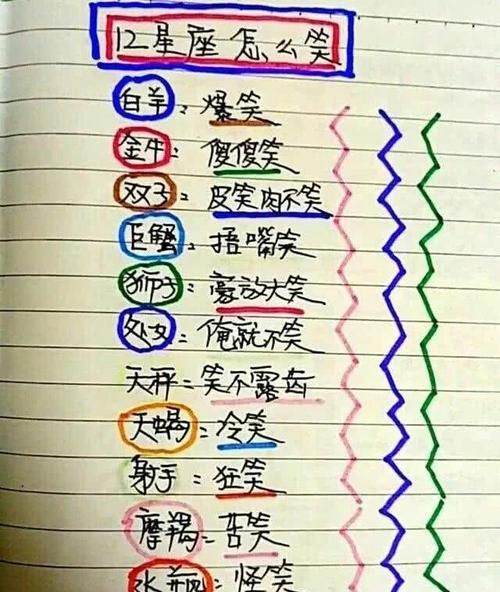 12星座怎么笑
白羊：爆笑
金牛：傻傻笑
双子：皮笑肉不笑
巨蟹：捂嘴笑
狮子：豪放大笑
处女：俺就不笑
天秤：笑不露齿
天蝎：冷笑
射手：狂笑
摩羯：苦笑
水瓶：怪笑